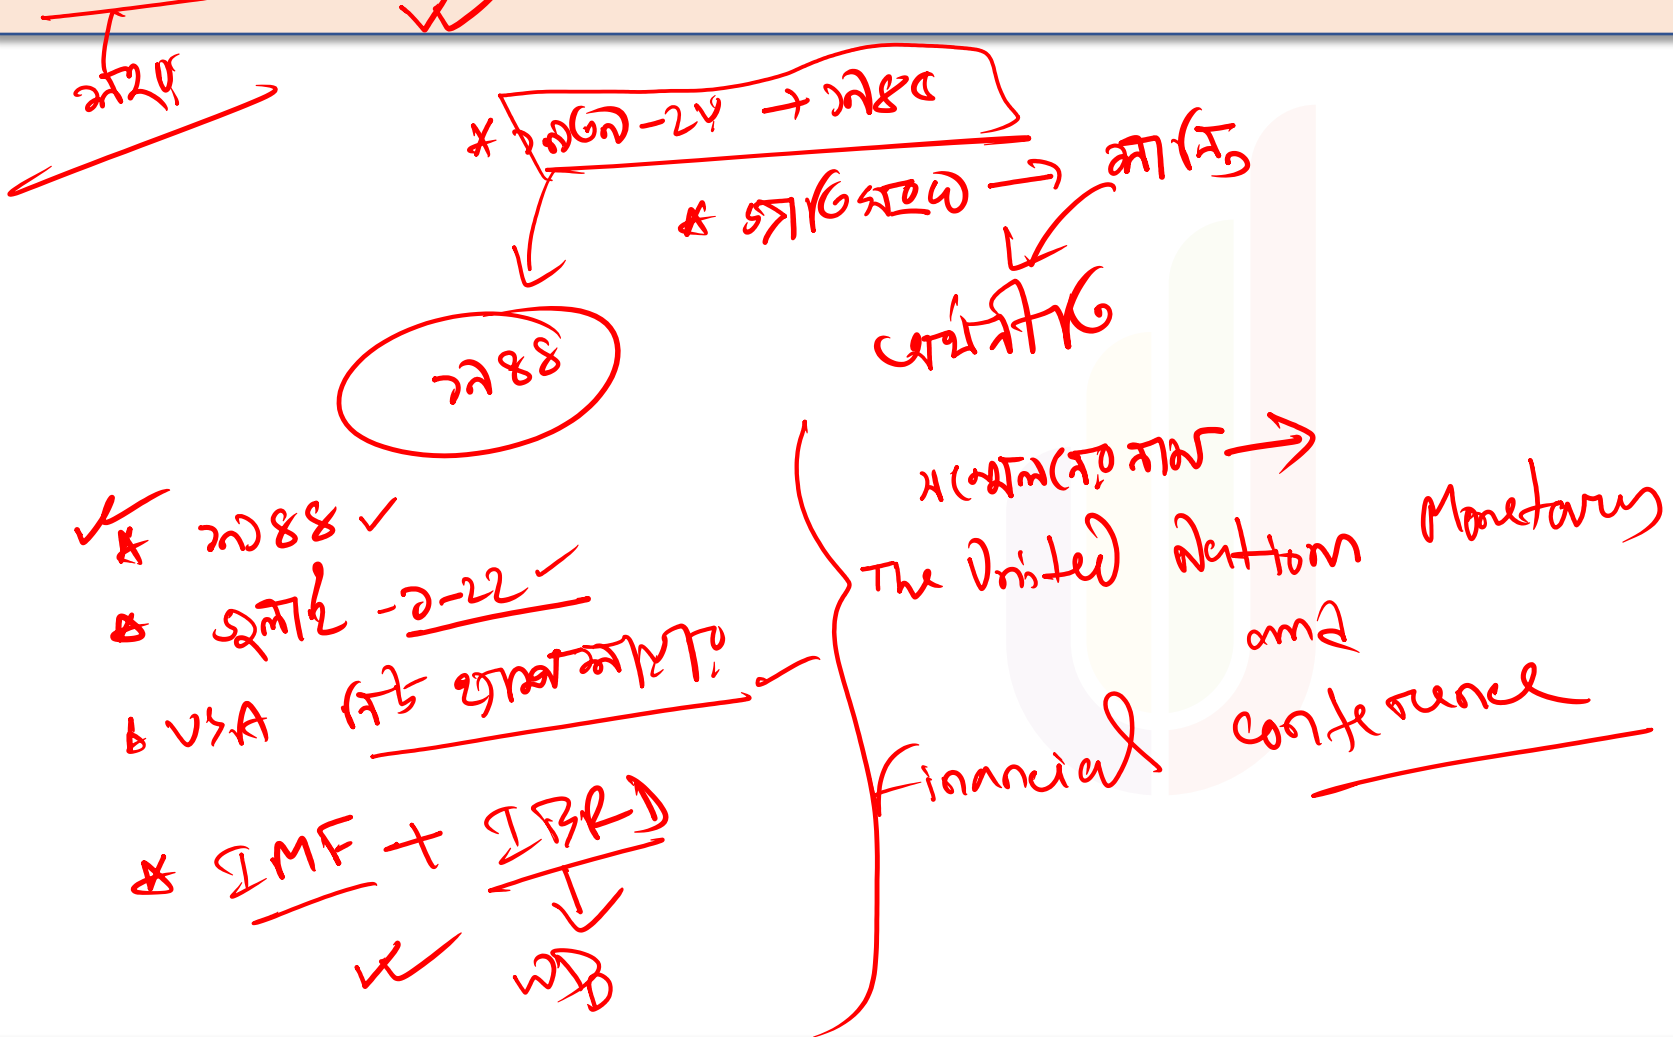 শহর
* ১৯৩৯-২য় → ১৯৪৫
* জাতিসংঘ → শান্তি
অর্থনীতি
১৯৪৪
* ১৯৪৪
* জুলাই -১-২২
* USA নিউ হ্যাম্পশায়ার
* IMF + IBRD
WB
সম্মেলনের নাম →
The United Nation Monetary
and
Financial conference